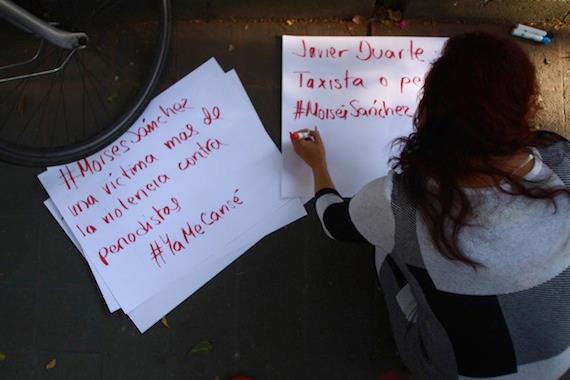 #MoisesSánchez
una víctima mas de
la violencia contra
periodistas
#YaMeCansé
Javier Duarte
Taxista o
#MoisésSánchez